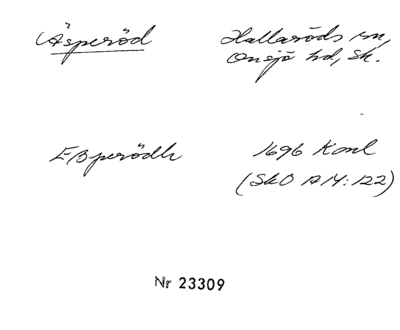 Äsperöd
Hallaröds sn,
Onsjö hd, Sk.
Eßperödh
1696 Konc
(SkO A 14:122)
Nr 23309